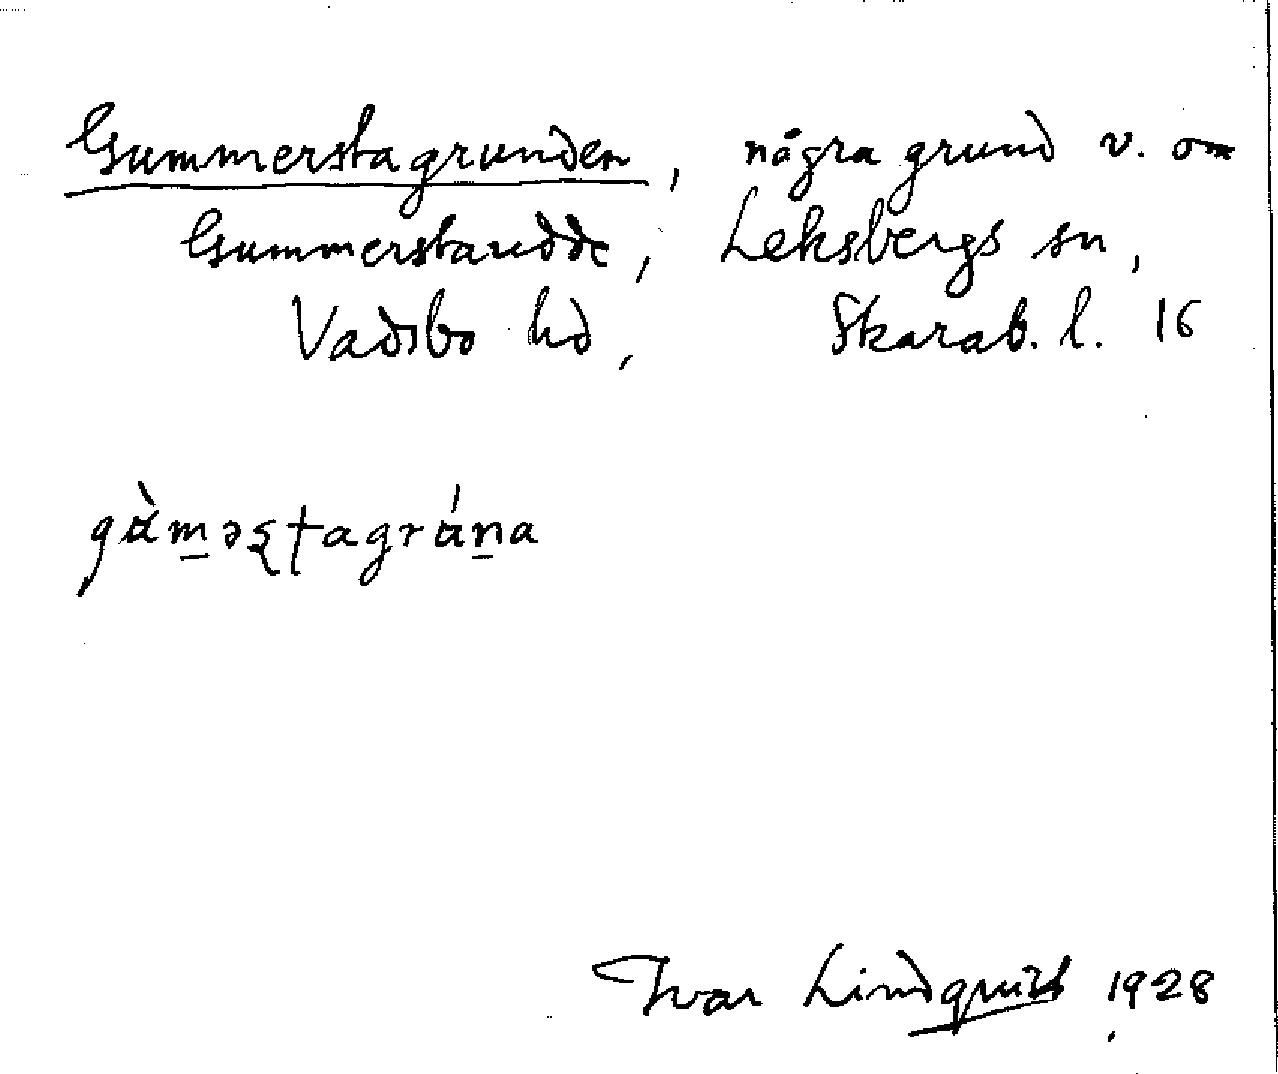 Gummerstagrunden, några grund v. om
Gummerstaudde, Leksbergs sn,
Vadsbo hd, Skarab. l. 16
gὰm̲əʂţagrάn̲a
Ivar Lindquist 1928